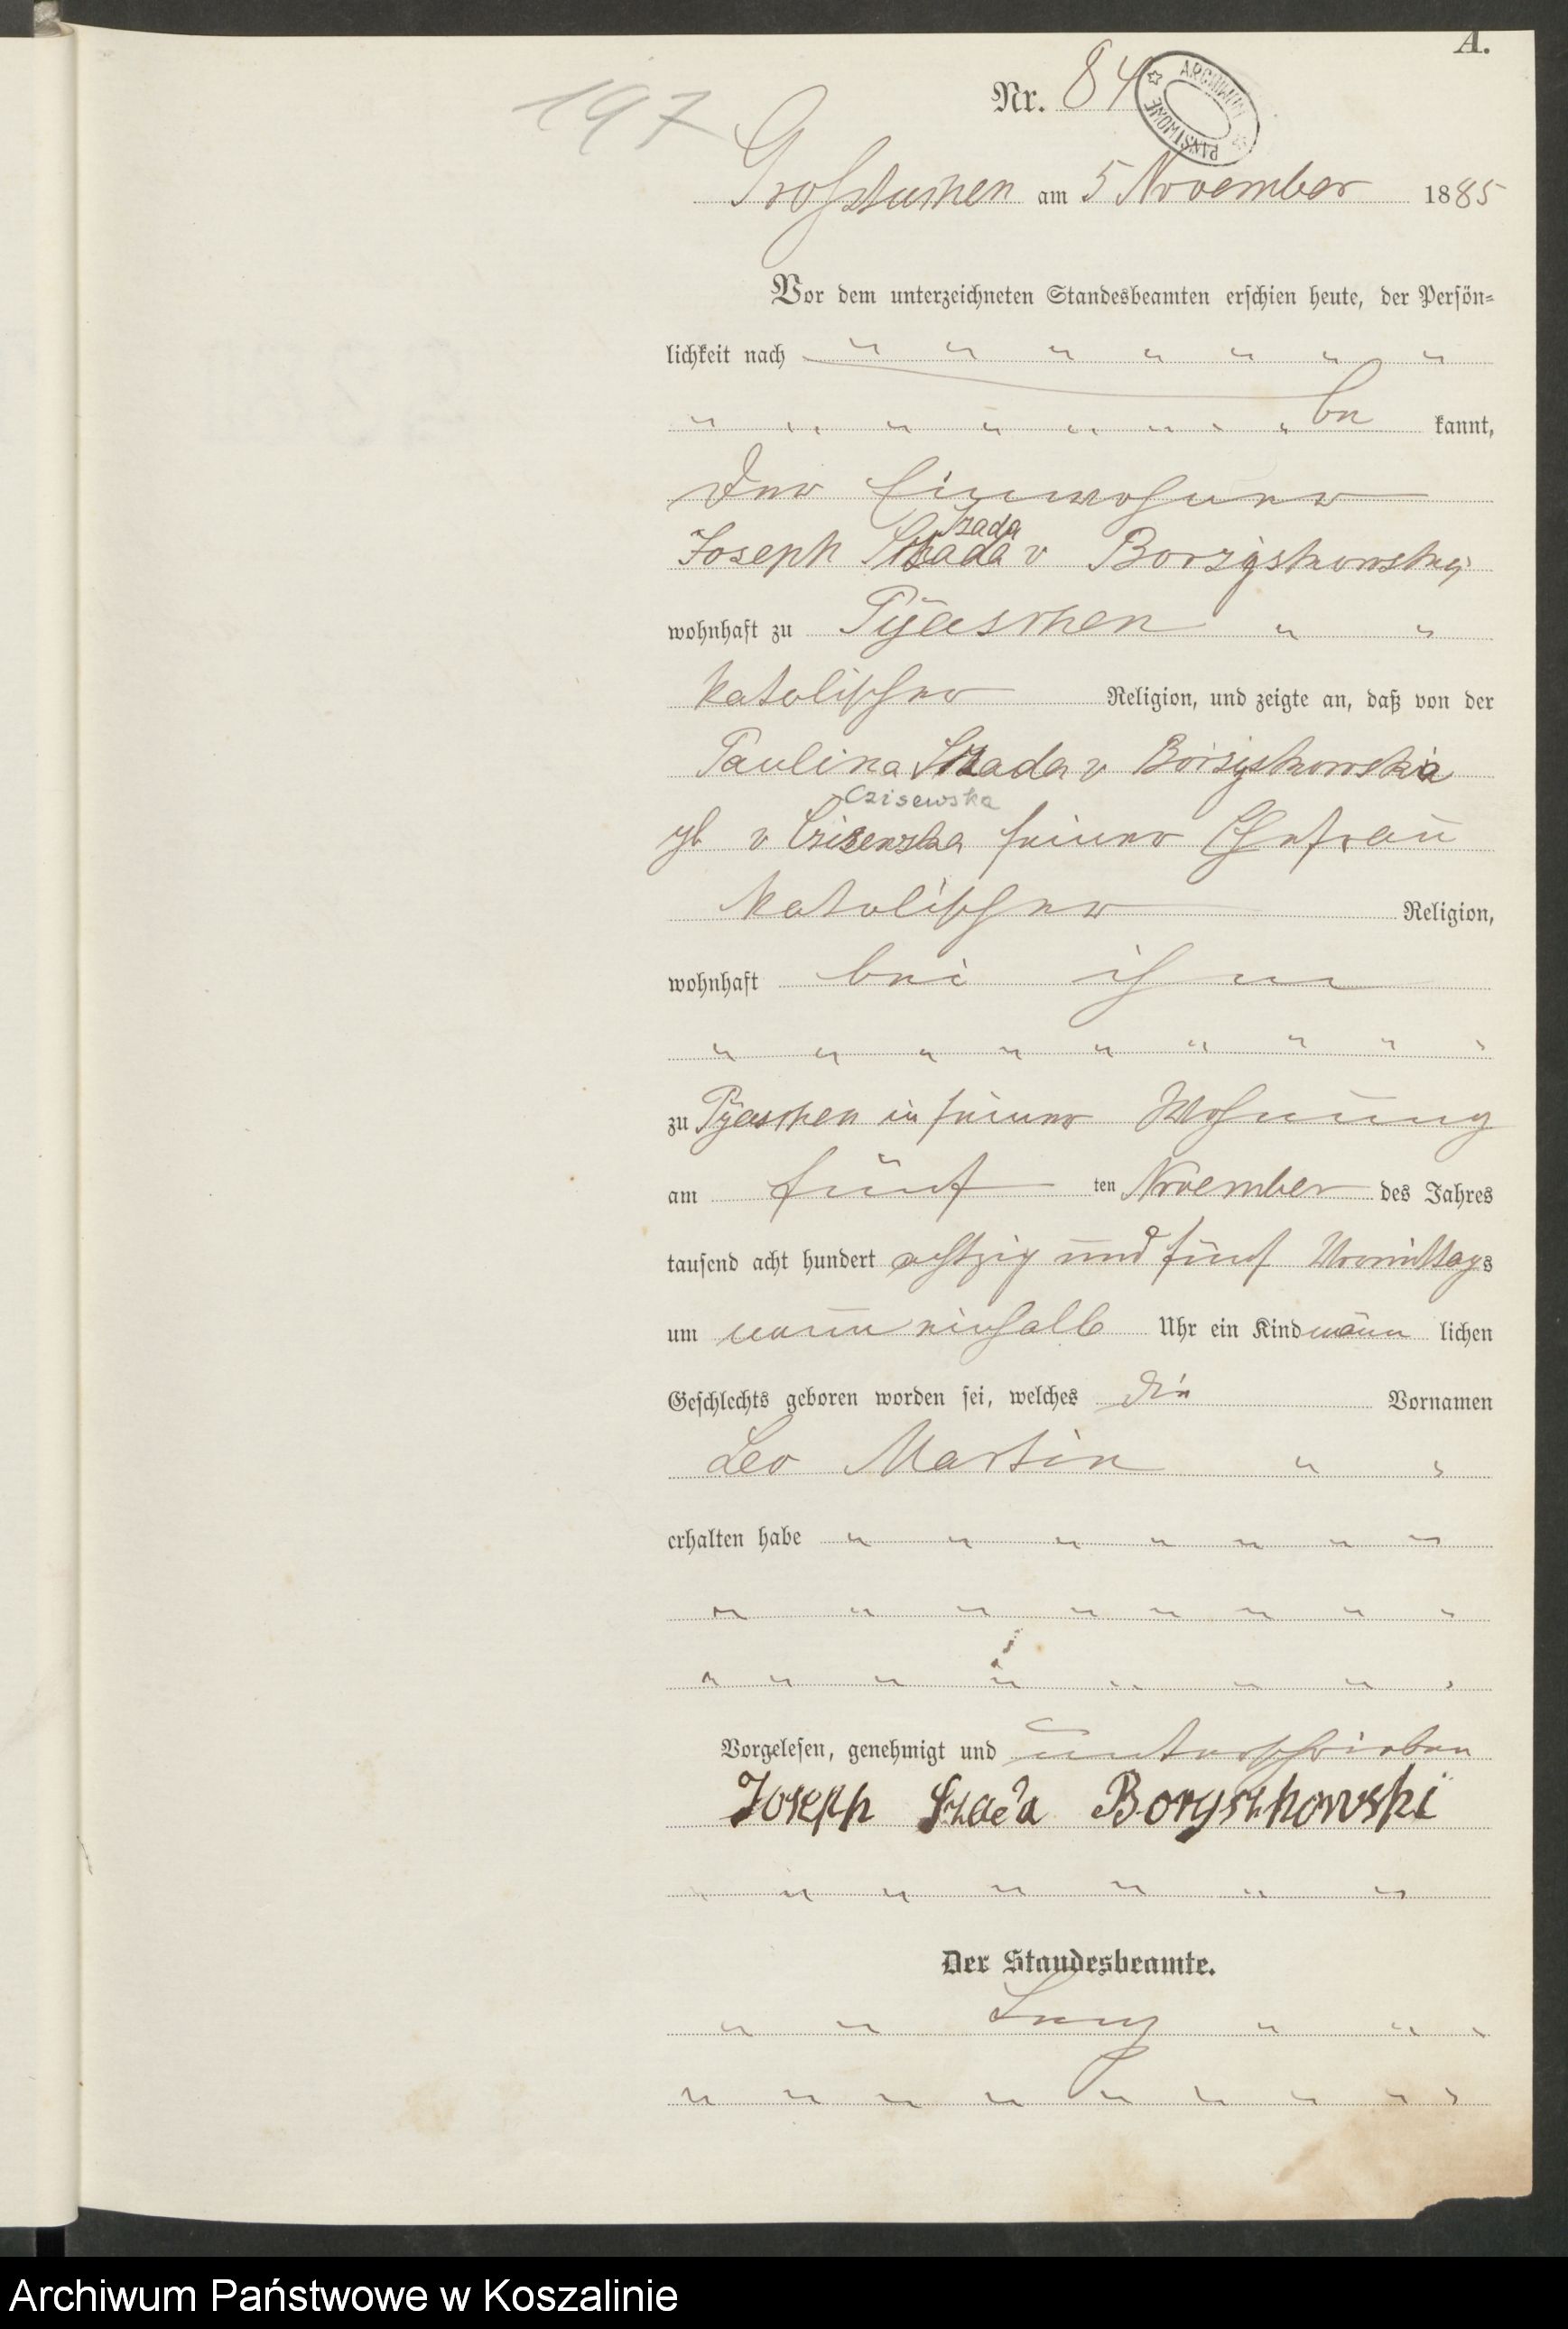 A.
197
Nr. 84
ARCHIWUM PAŃSTWOWE
Großtuchen am 5 November 1885
Vor dem unterzeichneten Standesbeamten erschien heute, der Persön-
lichkeit nach " " " " " " "
" " " " " " " " be kannt,
der Einwohner
Szada
Joseph Szada v Borzÿskowsky
wohnhaft zu Pÿaschen " "
katolischer Religion, und zeigte an, daß von der
Paulina Szada v Borsyskowska
Czisewska
gb v seiner Ehefrau
katolischer Religion,
wohnhaft bei ihm
" " " " " " " " "
zu Pÿaschen in seiner Wohnung
am fünf ten November des Jahres
tausend acht hundert achtzig und fünf Vormittags
um neun einhalb Uhr ein Kind männ lichen
Geschlechts geboren worden sei, welches die Vornamen
Leo Martin " "
erhalten habe " " " " " " "
" " " " " " " "
" " " " " " " "
Vorgelesen, genehmigt und unterschrieben
Joseph Szada Boryszkowski
" " " " " " "
Der Standesbeamte.
" " " " "
" " " " " " " " "
Archiwum Państwowe w Koszalinie